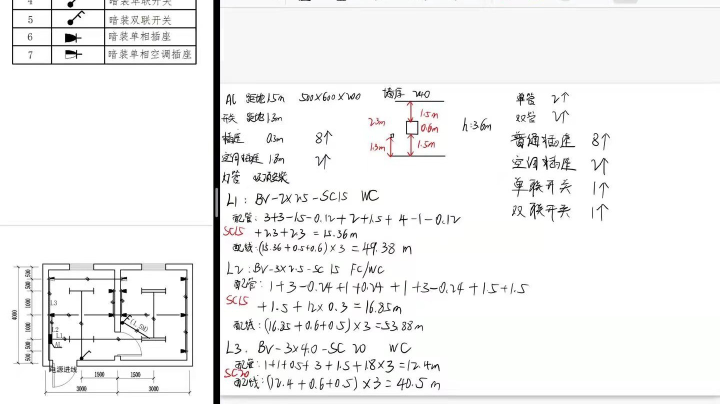 4 暗装单联开关
5 暗装双联开关
6 暗装单相插座
7 暗装单相空调插座
AL 距地1.5m 500×600×200
开关 距地1.3m
插座 0.3m 8个
空调插座 1.8m 2个
灯管 吸顶安装
墙厚 240
1.5m
2.3m 0.6m
1.3m 1.5m
h=3.6m
单管 2个
双管 2个
普通插座 8个
空调插座 2个
单联开关 1个
双联开关 1个
L1: BV-2×2.5-SC15 WC
配管: 3+3-1.5-0.12+2+1.5+4-1-0.12
SC15 +2.3+2.3=15.36m
配线:(15.36+0.5+0.6)×3=49.38m
L2: BV-3×2.5-SC15 FC/WC
配管: 1+3-0.24+1+0.24+1+3-0.24+1.5+1.5
SC15 +1.5+12×0.3=16.85m
配线:(16.85+0.6+0.5)×3=53.88m
L3: BV-3×4.0-SC20 WC
配管: 1+1+0.5+3+1.5+1.8×3=12.4m
SC20
配线:(12.4+0.6+0.5)×3=40.5m
500 500 1000 1000 500 500
4000
L3
L2
L1
AL
电源进线
1500 1500
3000 3000